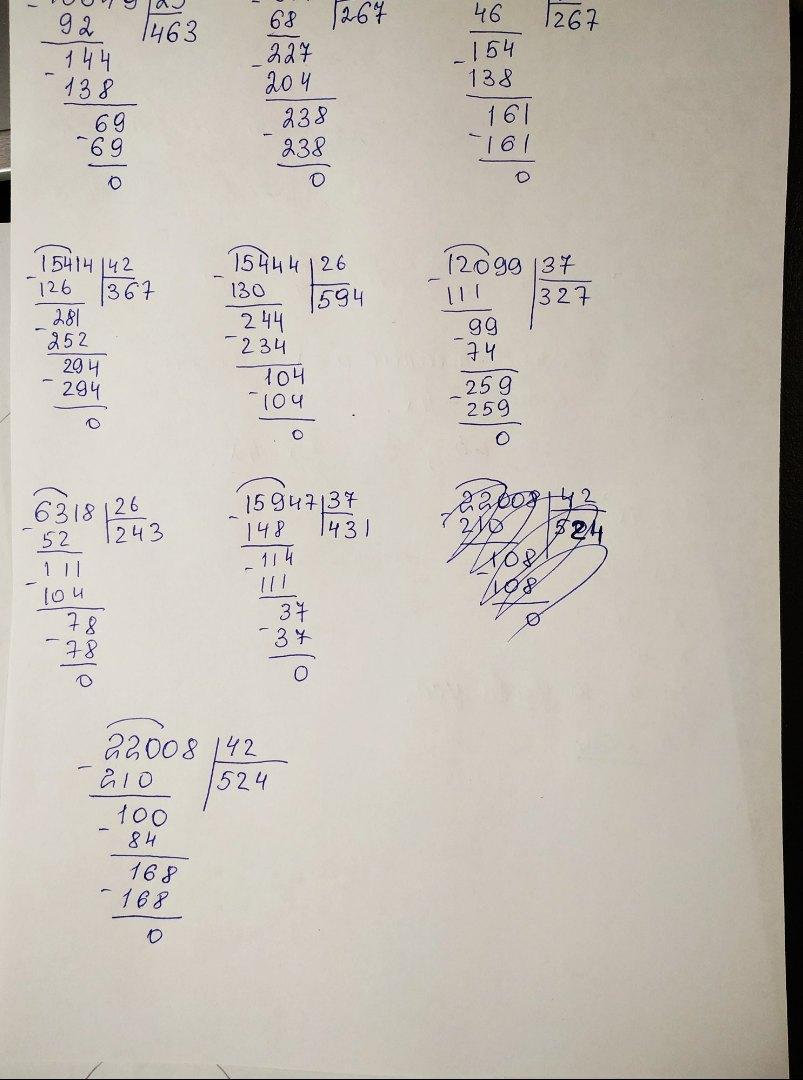 92 463
- 144
138
69
- 69
0
68 267
- 227
204
238
- 238
0
46 267
- 154
138
161
- 161
0
- 15414 42
126 367
- 281
252
294
- 294
0
- 15444 26
130 594
244
- 234
104
- 104
0
- 12099 37
111 327
- 99
74
- 259
259
0
- 6318 26
52 243
- 111
104
78
- 78
0
- 15947 37
148 431
- 114
111
37
- 37
0
- 22008 42
210 524
- 108
108
0
- 22008 42
210 524
- 100
84
- 168
168
0